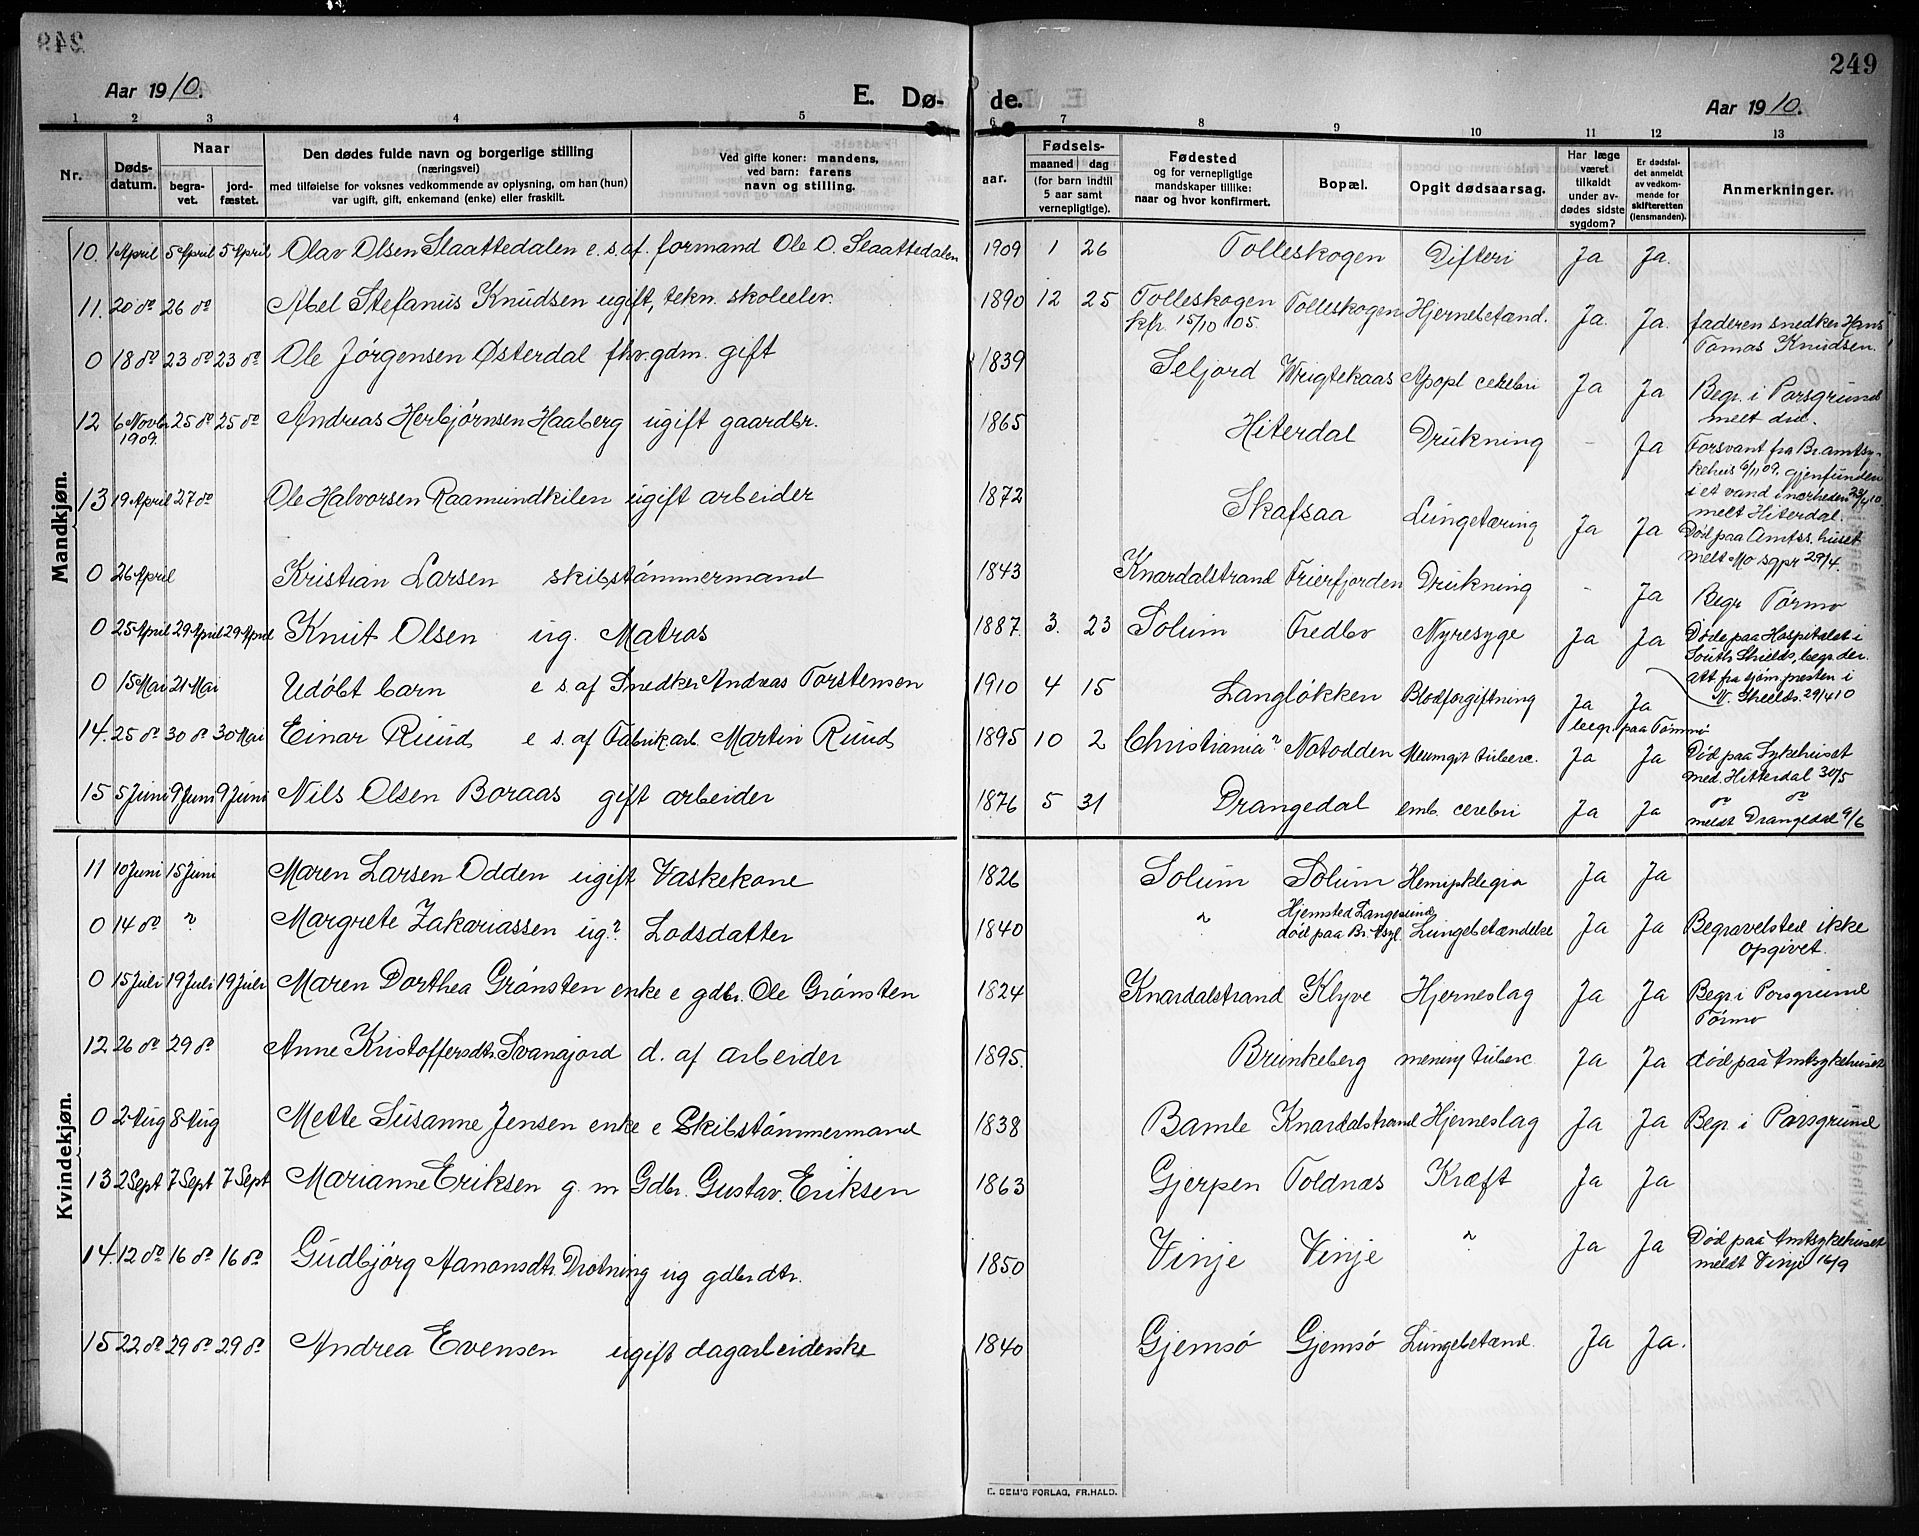 249
Aar 1910.
E. Dø-
de.
Aar 1910.
1 2 3 4 5 6 7 8 9 10 11 12 13
Nr.
Døds-
datum.
Naar
begra-
vet.
jord-
fæstet.
Den dødes fulde navn og borgerlige stilling
(næringsvei)
med tilføielse for voksnes vedkommende av oplysning, om han (hun)
var ugift, gift, enkemand (enke) eller fraskilt.
Ved gifte koner: mandens,
ved barn: farens
navn og stilling.
aar.
Fødsels-
maaned dag
(for barn indtil
5 aar samt
vernepligtige).
Fødested
og for vernepligtige
mandskaper tillike:
naar og hvor konfirmert.
Bopæl.
Opgit dødsaarsag.
Har læge
været
tilkaldt
under av-
dødes sidste
sygdom?
Er dødsfal-
det anmeldt
av vedkom-
mende for
skifteretten
(lensmanden).
Anmerkninger.
Mandkjøn.
10. 1 April 5 April 5 April Olav Olsen Slaattedalen e. s. af. formand Ole O. Slaattedalen 1909 1 26 Tolleskogen Difteri Ja Ja.
11. 20 do 26 do Abel Stefanus Knudsen ugift, tekn. skoleelev. 1890 12 25 Tolleskogen Tolleskogen Hjernebetænd. Ja. Ja. faderen snedker Hans
kfr. 15/10 05. Tomas Knudsen.
0 18 do 23 do 23 do Ole Jörgensen Østerdal fhv. gdm. gift 1839 Seljord Wrigtekaas Apopl cerebri Ja Ja Begr. i Porsgrund
12 6 Novbr 25 do 25 do Andreas Herbjörnsen Haaberg ugift gaardbr. 1865 Hiterdal Drukning - Ja Forsvant fra Br. amtsy-
1909. kehus 6/11 09. gjenfunden
i et vand i nærheden 23/4 10.
melt Hiterdal.
13 19 April 27 do Ole Halvorsen Raamundkilen ugift arbeider 1872 Skafsaa Lungetæring Ja Ja Död paa Amtss. huset
melt Mo sgpr 29/4.
0 26 April Kristian Larsen skibstömmermand 1843 Knardalstrand Frierfjorden Drukning - Ja Begr Törmo
0 25 April 29 April 29 April Knut Olsen ug. Matros 1887. 3. 23 Solum Tredlev Nyresyge Ja Ja Döde paa Hospitalet i
South Shields, begr. der.
att fra sjöm. presten i
N. Shields. 29/4 10
0 15 Mai 21 Mai Udöbt barn e s. af Snedker Andreas Torstensen 1910 4 15 Langlökken Blodforgiftning Ja Ja
begr. paa Tömmö
14. 25 do 30 do 30 Mai Einar Ruud e s. af Fabrikarb. Martin Ruud 1895 10 2 Christiania Notodden Meningit tuberc. Ja Ja Död paa Sykehuset
med. Hitterdal 30/5
15 5 Juni 9 Juni 9 Juni Nils Olsen Boraas gift arbeider 1876 5 31 Drangedal emb. cerebri Ja Ja do do
meldt Drangedal 9/6
Kvindekjøn.
11 10 Juni 15 Juni Maren Larsen Odden ugift Vaskekone 1826 Solum Solum Ja Ja
0 14 do " Margrete Zakariassen ug? Lodsdatter 1840 " Hjemsted Langesund, Lungebetændelse Ja Ja Begravelsted ikke
död paa Br. Asyl opgivet.
0 15 Juli 19 Juli 19 Juli Maren Dorthea Grønsten enke e gdbr. Ole Grønsten 1824 Knardalstrand Klyve Hjerneslag Ja Ja Begr. i Porsgrund
Törmo
12 26 do 29 do Anne Kristoffersdtr. Svanajord d. af arbeider 1895. Brunkeberg mening tuberc Ja Ja död paa Amtsykehuset
0 2 Aug 8 Aug Mette Susanne Jensen enke e Skibstömmermand 1838 Bamle Knardalstrand Hjerneslag Ja Ja Begr. i Porsgrund
13 2 Sept 7 Sept 7 Sept Marianne Eriksen g. m Gdbr. Gustav. Eriksen 1863 Gjerpen Toldnæs Kræft Ja Ja
14. 12 do 16 do 16 do Gudbjörg Aanonsdtr. Drotning ug gdbr dtr. 1850 Vinje Vinje " Ja Ja Död paa Amtsykehuset
meldt Vinje 16/9
15 22 do 29 do 29 do Andrea Evensen ugift dagarbeiderske 1840 Gjemsø Gjemsø Lungebetænd. Ja Ja.
E. SEM'S FORLAG, FR.HALD.